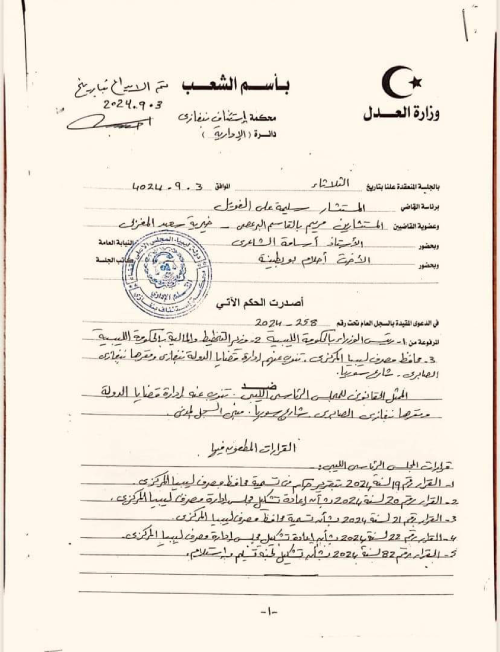 بـأسـم الشعـب
وزارة العـدل
تم الايداع بتاريخ
2024.9.3
محكمة إستئناف بنغازى
دائرة (الإدارية)
بالجلسة المنعقدة علنا بتاريخ الثلاثاء الموافق 2024.9.3
برئاسة القاضي المستشار
وعضوية القاضيين المستشارين مريم بالقاسم - خيرية سعيد المغربى
وبحضور الأستاذ أسامة الشاعرى النيابة العامة
وبحضور الأخت أحلام بوبطينة كاتب الجلسة
أصدرت الحكم الآتي
في الدعوى المقيدة بالسجل العام تحت رقم 258 - 2024
المرفوعة من 1- رئيس الوزراء بالحكومة الليبية 2- وزير التخطيط والمالية بالحكومة الليبية
3- محافظ مصرف ليبيا المركزى. تنوب عنهم إدارة قضايا الدولة بنغازى ومقرها بنغازى
الصابرى - شارع سوريا.
ضــد
الممثل القانونى للمجلس الرئاسى الليبى. تنوب عنه إدارة قضايا الدولة
ومقرها بنغازى الصابرى شارع سوريا. مبنى السجل المدنى.
القرارات المطعون فيها
قرارات المجلس الرئاسى الليبى:-
1- القرار رقم 19 لسنة 2024 بتسمية محافظ مصرف ليبيا المركزى.
2- القرار رقم 20 لسنة 2024 بشأن إعادة تشكيل مجلس إدارة مصرف ليبيا المركزى.
3- القرار رقم 21 لسنة 2024 بشأن تسمية محافظ مصرف ليبيا المركزى.
4- القرار رقم 22 لسنة 2024 بشأن إعادة تشكيل مجلس إدارة مصرف ليبيا المركزى.
5- القرار رقم 82 لسنة 2024 بشأن تشكيل لجنة تسليم واستلام.
-١-